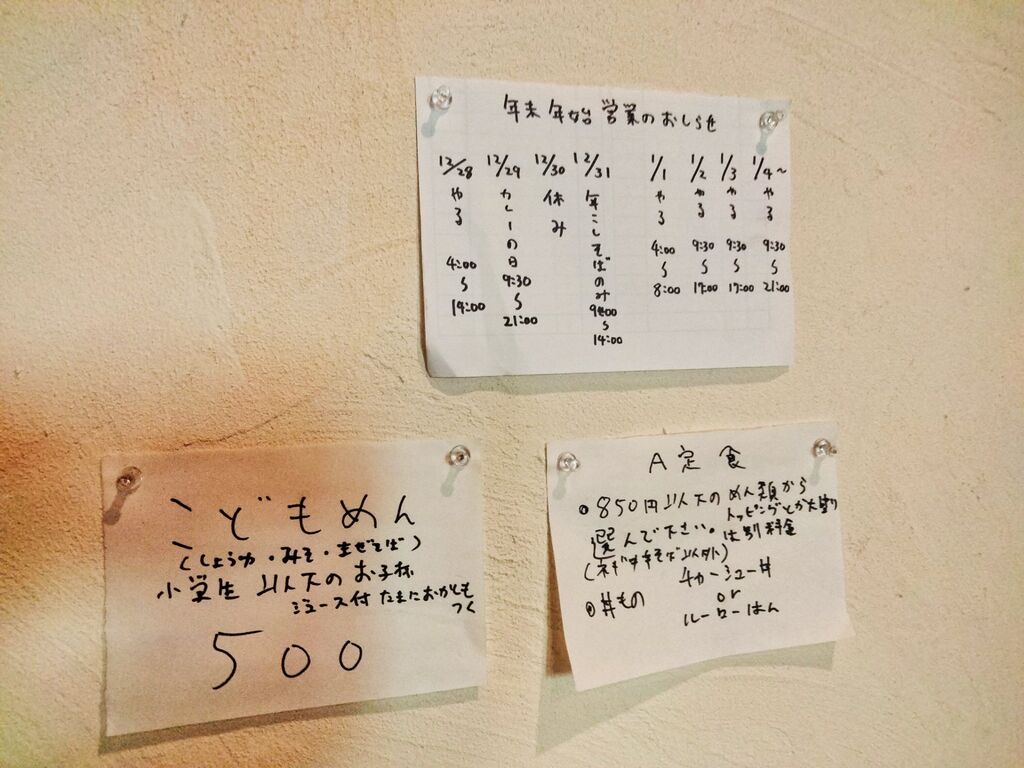 年末年始営業のおしらせ
12/28 やる 4:00〜14:00
12/29 カレーの日 9:30〜21:00
12/30 休み
12/31 年こしそばのみ 9:00〜14:00
1/1 やる 4:00〜8:00
1/2 やる 9:30〜17:00
1/3 やる 9:30〜17:00
1/4〜 やる 9:30〜21:00
こどもめん
(しょうゆ・みそ・まぜそば)
小学生以下のお子様
ジュース付 たまにおかしも
つく
500
A定食
●850円以下のめん類から
選んで下さい。
トッピングとか大盛り
は別料金
(以外)
●丼もの
チャーシュー丼
or
ルーローはん